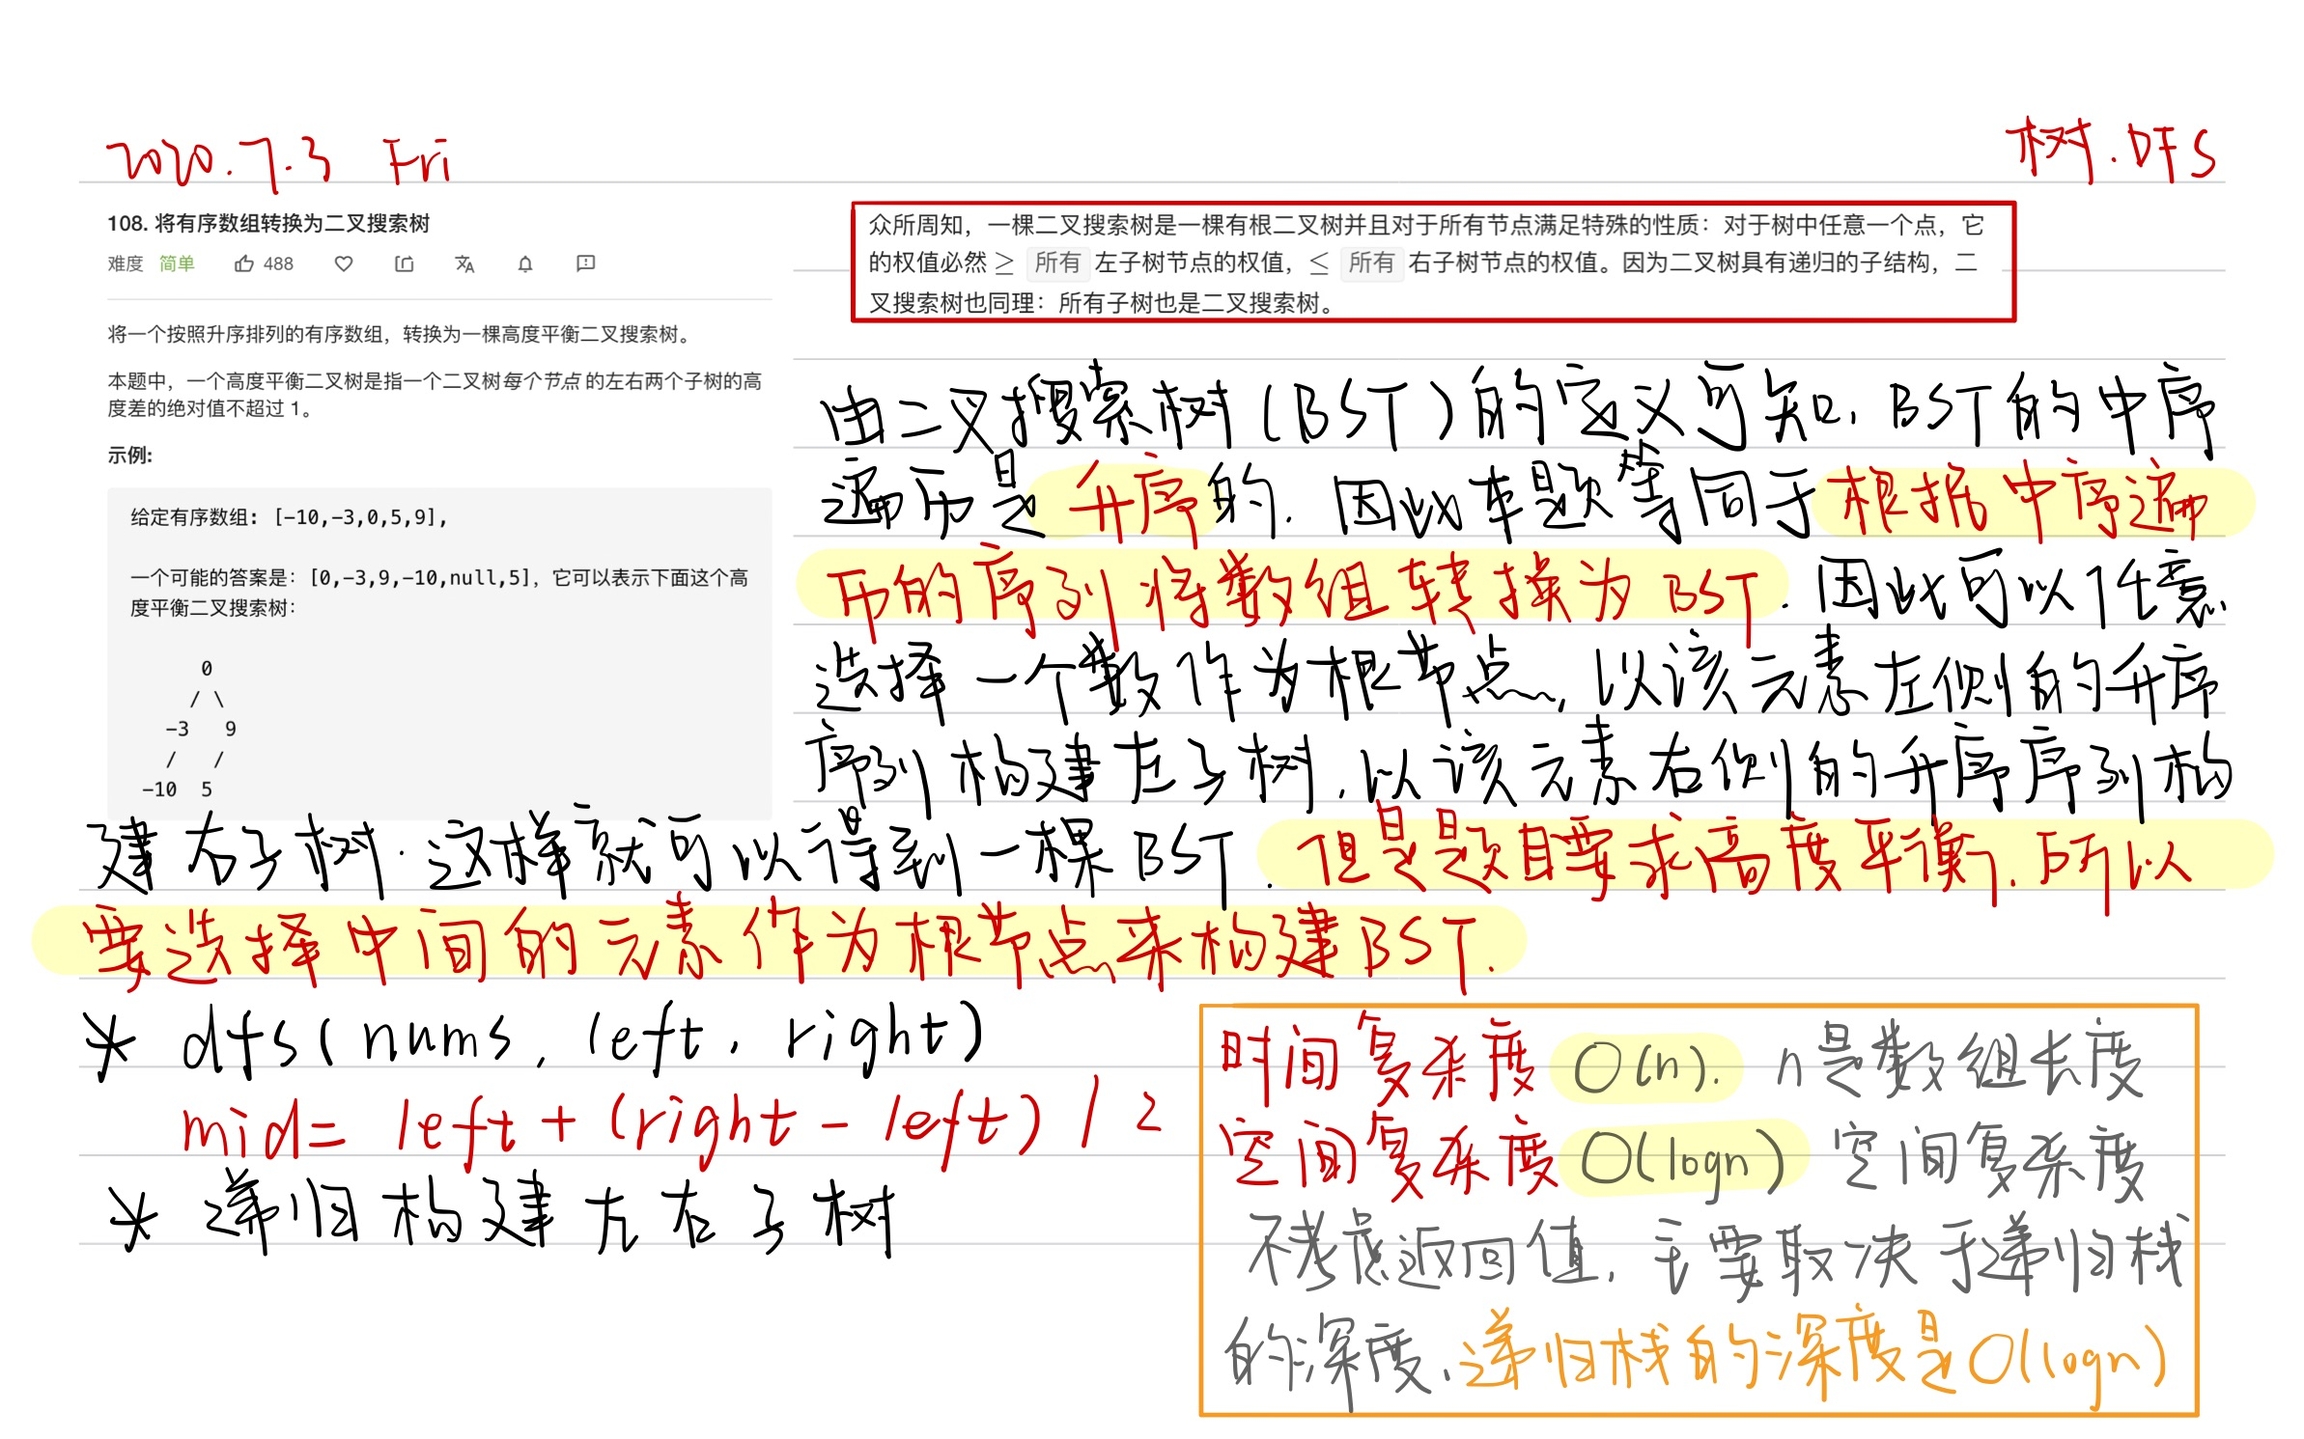 2020.7.3 Fri
树.DFS
108. 将有序数组转换为二叉搜索树
难度 简单 488
将一个按照升序排列的有序数组，转换为一棵高度平衡二叉搜索树。
本题中，一个高度平衡二叉树是指一个二叉树每个节点 的左右两个子树的高
度差的绝对值不超过 1。
示例:
给定有序数组: [-10,-3,0,5,9],
一个可能的答案是：[0,-3,9,-10,null,5]，它可以表示下面这个高
度平衡二叉搜索树：
0
/ \
-3 9
/ /
-10 5
众所周知，一棵二叉搜索树是一棵有根二叉树并且对于所有节点满足特殊的性质：对于树中任意一个点，它
的权值必然 ≥ 所有 左子树节点的权值，≤ 所有 右子树节点的权值。因为二叉树具有递归的子结构，二
叉搜索树也同理：所有子树也是二叉搜索树。
由二叉搜索树(BST)的定义可知, BST的中序
遍历是升序的. 因此本题等同于根据中序遍
历的序列将数组转换为BST. 因此可以任意
选择一个数作为根节点, 以该元素左侧的升序
序列构建左子树, 以该元素右侧的升序序列构
建右子树. 这样就可以得到一棵BST. 但是题目要求高度平衡, 所以
要选择中间的元素作为根节点来构建BST.
* dfs(nums, left, right)
mid= left + (right - left) / 2
* 递归构建左右子树
时间复杂度 O(n). n是数组长度
空间复杂度 O(logn) 空间复杂度
不考虑返回值, 主要取决于递归栈
的深度, 递归栈的深度是O(logn)